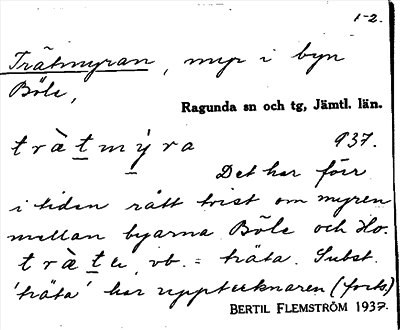 1-2.
Trätmyran, myr i byn
Böle,
Ragunda sn och tg, Jämtl. län.
t r ä̀ t m ý r a 937.
Det har förr
i tiden rått tvist om myren
mellan byarna Böle och Ho.
t r ä̀ t e, vb. = träta. Subst.
'träta' har upptecknaren (forts.)
BERTIL FLEMSTRÖM 1937.